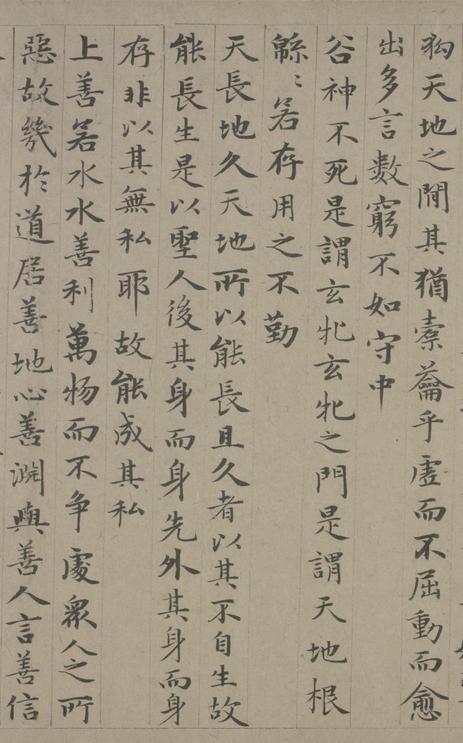 狗天地之間其猶橐蘥乎虛而不屈動而愈
出多言數窮不如守中
谷神不死是謂玄牝玄牝之門是謂天地根
綿〻若存用之不勤
天長地久天地所以能長且久者以其不自生故
能長生是以聖人後其身而身先外其身而身
存非以其無私耶故能成其私
上善若水水善利萬物而不争處衆人之所
惡故幾於道居善地心善淵與善人言善信